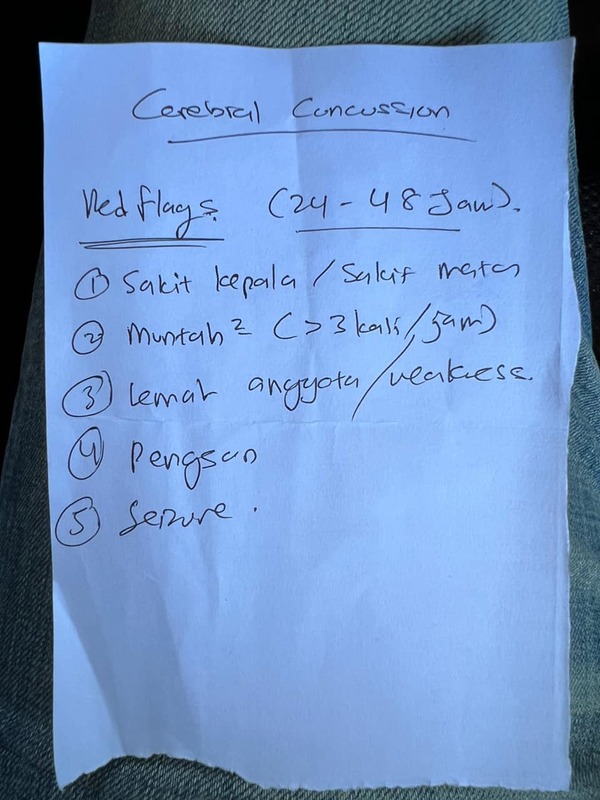 Cerebral Concussion
Red flags. (24 - 48 Jam).
① Sakit kepala / Sakit mata
② Muntah² (>3 kali/jam)
③ Lemah anggota/weakness.
④ Pengsan
⑤ Seizure.